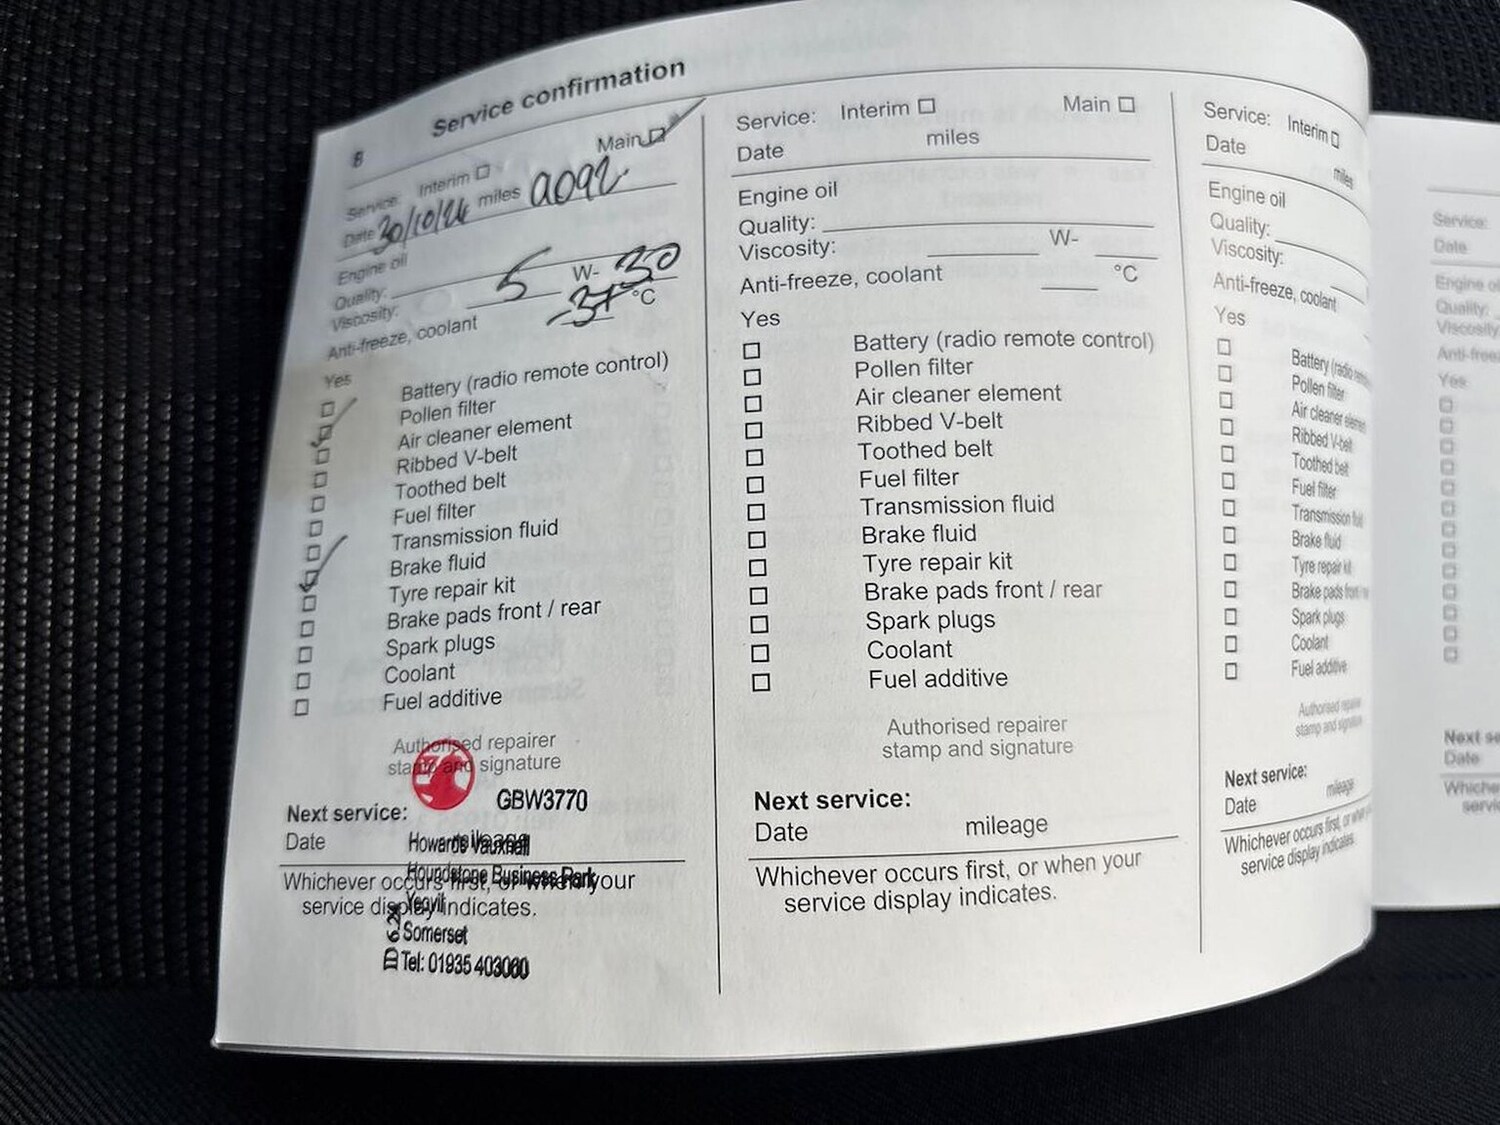 8
Service confirmation
Service: Interim Main
Date 30/10/24 miles 9092
Engine oil
Quality:
Viscosity: 5 W- 30
Anti-freeze, coolant -37 °C
Yes
Battery (radio remote control)
Pollen filter
Air cleaner element
Ribbed V-belt
Toothed belt
Fuel filter
Transmission fluid
Brake fluid
Tyre repair kit
Brake pads front / rear
Spark plugs
Coolant
Fuel additive
Authorised repairer
stamp and signature
GBW3770
Next service:
Date mileage
Howards Vauxhall
Houndstone Business Park
Whichever occurs first, or when your
Yeovil
service display indicates.
Somerset
Tel: 01935 403060
Service: Interim Main
Date miles
Engine oil
Quality:
Viscosity: W-
Anti-freeze, coolant °C
Yes
Battery (radio remote control)
Pollen filter
Air cleaner element
Ribbed V-belt
Toothed belt
Fuel filter
Transmission fluid
Brake fluid
Tyre repair kit
Brake pads front / rear
Spark plugs
Coolant
Fuel additive
Authorised repairer
stamp and signature
Next service:
Date mileage
Whichever occurs first, or when your
service display indicates.
Service: Interim
Date miles
Engine oil
Quality:
Viscosity:
Anti-freeze, coolant
Yes
Battery (radio remote
Pollen filter
Air cleaner element
Ribbed V-belt
Toothed belt
Fuel filter
Transmission fluid
Brake fluid
Tyre repair kit
Brake pads front / re
Spark plugs
Coolant
Fuel additive
Authorised repaire
stamp and signature
Next service:
Date mileage
Whichever occurs first, or when
service display indicates.
Service:
Date
Engine oil
Quality:
Viscosity:
Anti-freez
Yes
Next se
Date
Whiche
servic